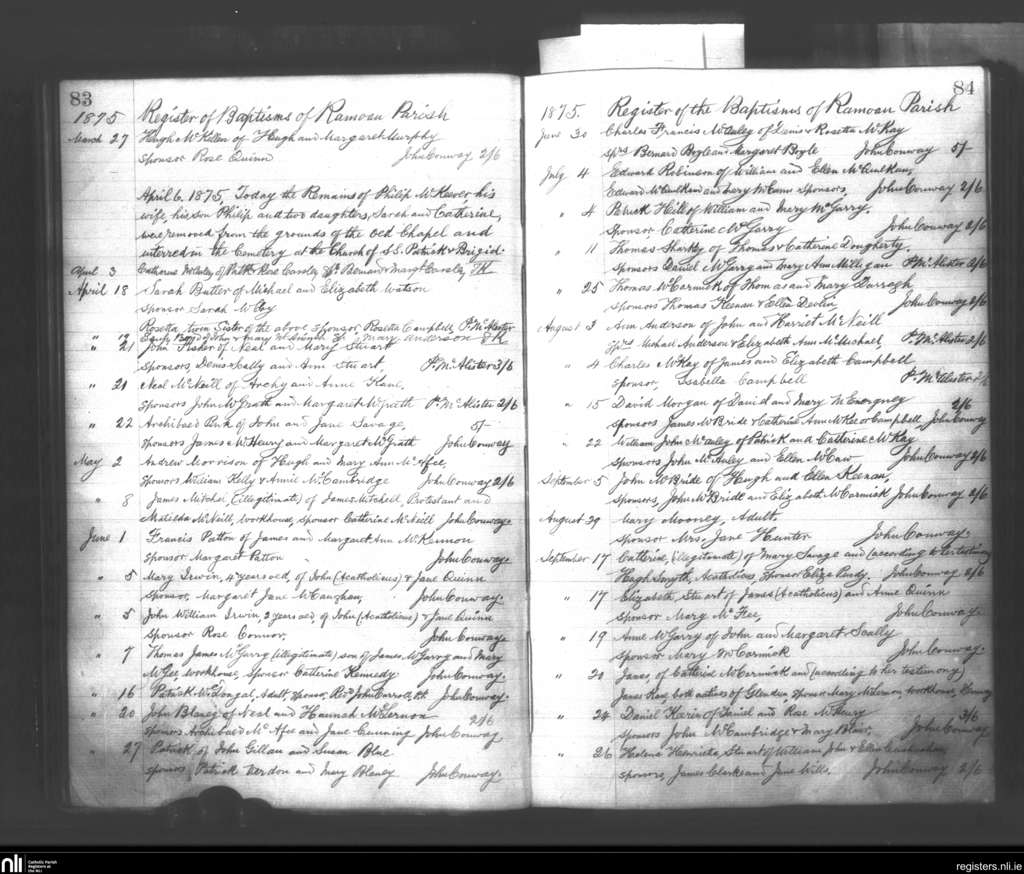 83
1875 Register of Baptisms of Ramoan Parish
March 27 Hugh McKillen of Hugh and Margaret Murphy
Sponsor Rose Quinn John Conway 2/6
April 6. 1875, Today the Remains of Philip McKeever, his
wife, his son Philip and two daughters, Sarah and Catherine,
were removed from the grounds of the Old Chapel and
interred in the Cemetery at the Church of S.S. Patrick & Brigid.
April 3 Catharine McCurley of Patk & Rose Bernard & Margt
April 18 Sarah Butler of Michael and Elizabeth Watson
Sponsor Sarah McCoy
Rosetta twin Sister of the above sponsor, Rosetta Campbell, P. McAlister
" of John & Mary Mary Anderson
" 21 John Fisher of Neal and Mary Stuart
Sponsors, Denis Scally and Ann Stuart P. McAlister 3/6
" 21 Neal McNeill of Archy and Anne Kane,
Sponsors John McGrath and Margaret McGrath P. McAlister 2/6
" 22 Archibald Bink of John and Jane Savage, 5/-
Sponsors James McHenry and Margaret McGrath John Conway
May 2 Andrew Morrison of Hugh and Mary Ann McAfee,
Sponsors William Kelly & Annie McCambridge John Conway 2/6
" 8 James Mitchel, (Illegitimate) of James Mitchell, Protestant and
Matilda McNeill, Workhouse, sponsor Catherine McNeill John Conway.
June 1 Francis Patton of James and Margaret Ann McKennon
Sponsor Margaret Patton John Conway.
" 5 Mary Irwin, 4 years old, of John (Acatholicus) & Jane Quinn
Sponsor, Margaret Jane McCaughan, John Conway.
" 5 John William Irwin, 2 years old, of John (Acatholicus) & Jane Quinn
Sponsor Rose Connor, John Conway.
" 7 Thomas James McGarry (illegitimate) son of James McGarry and Mary
McGee, workhouse, Sponsor Catherine Kennedy John Conway.
" 16 Patrick McDougal, Adult sponsor, Revd John Carroll, John Conway.
" 20 John Blaney of Neal and Hannah McLernon 2/6
Sponsors Archibald McAfee and Jane Cunning John Conway
" 27 Patrick of John Gillan and Susan Blue
Sponsors Patrick Verdon and Mary Blaney John Conway.
84
1875. Register of the Baptisms of Ramoan Parish
June 30 Charles Francis McAuley of Lewis & Rosetta McKay
Sprs Bernard Boyle and Margaret Boyle John Conway 5/-
July 4 Edward Robinson of William and Ellen McQuilkan,
Edward McQuilkan and Mary McCann Sponsors, John Conway 2/6
" 4 Patrick Hill of William and Mary McGarry.
Sponsor Catherine McGarry John Conway 2/6
" 11 Thomas Sharkey of Thomas & Catherine Dougherty,
Sponsors Daniel McGarry and Mary Ann Milligan P. McAlister 2/6
" 25 Thomas McCormick of Thomas and Mary Darragh
Sponsors Thomas Keenan & Ellen Devlin John Conway 2/6
August 3 Ann Anderson of John and Harriet McNeill
Sprs Michael Anderson & Elizabeth Ann McMichael, P. McAlister 2/6
" 4 Charles McKay of James and Elizabeth Campbell
Sponsor, Isabella Campbell P. McAlister 2/6
" 15 David Morgan of David and Mary 2/6
Sponsors James McBride & Catherine Ann McKee or Campbell John Conway
" 22 William John McAuley of Patrick and Catherine McKay
Sponsors John McAuley and Ellen McCaw John Conway 2/6
September 5 John McBride of Hugh and Ellen Keenan,
Sponsors, John McBride and Elizabeth McCormick John Conway 2/6
August 29 Mary Mooney, Adult,
Sponsor Mrs. Jane Hunter John Conway.
September 17 Catherine, (illegitimate) of Mary Savage and (according to her testimony
Hugh Smyth, Acatholicus, Sponsor Eliza Purdy. John Conway 2/6
" 17 Elizabeth Stuart of James (Acatholicus) and Anne Quinn
Sponsor Mary McFee, John Conway.
" 19 Anne McGarry of John and Margaret Scally
Sponsor Mary McCormick John Conway.
" 20 James, of Catherine McCormick and (according to her testimony)
James Kane, both natives of Glendun Sponsor Mary McLernon, workhouse, Conway
" 24 Daniel of Daniel and Rose McHenry 3/6
Sponsors John McCambridge & Mary Blair, John Conway
" 26 Helena Henrietta Stuart of William John & Ellen
Sponsors, James Clarke and Jane Wills. John Conway 2/6
nli
Catholic Parish
Registers at
the NLI
registers.nli.ie